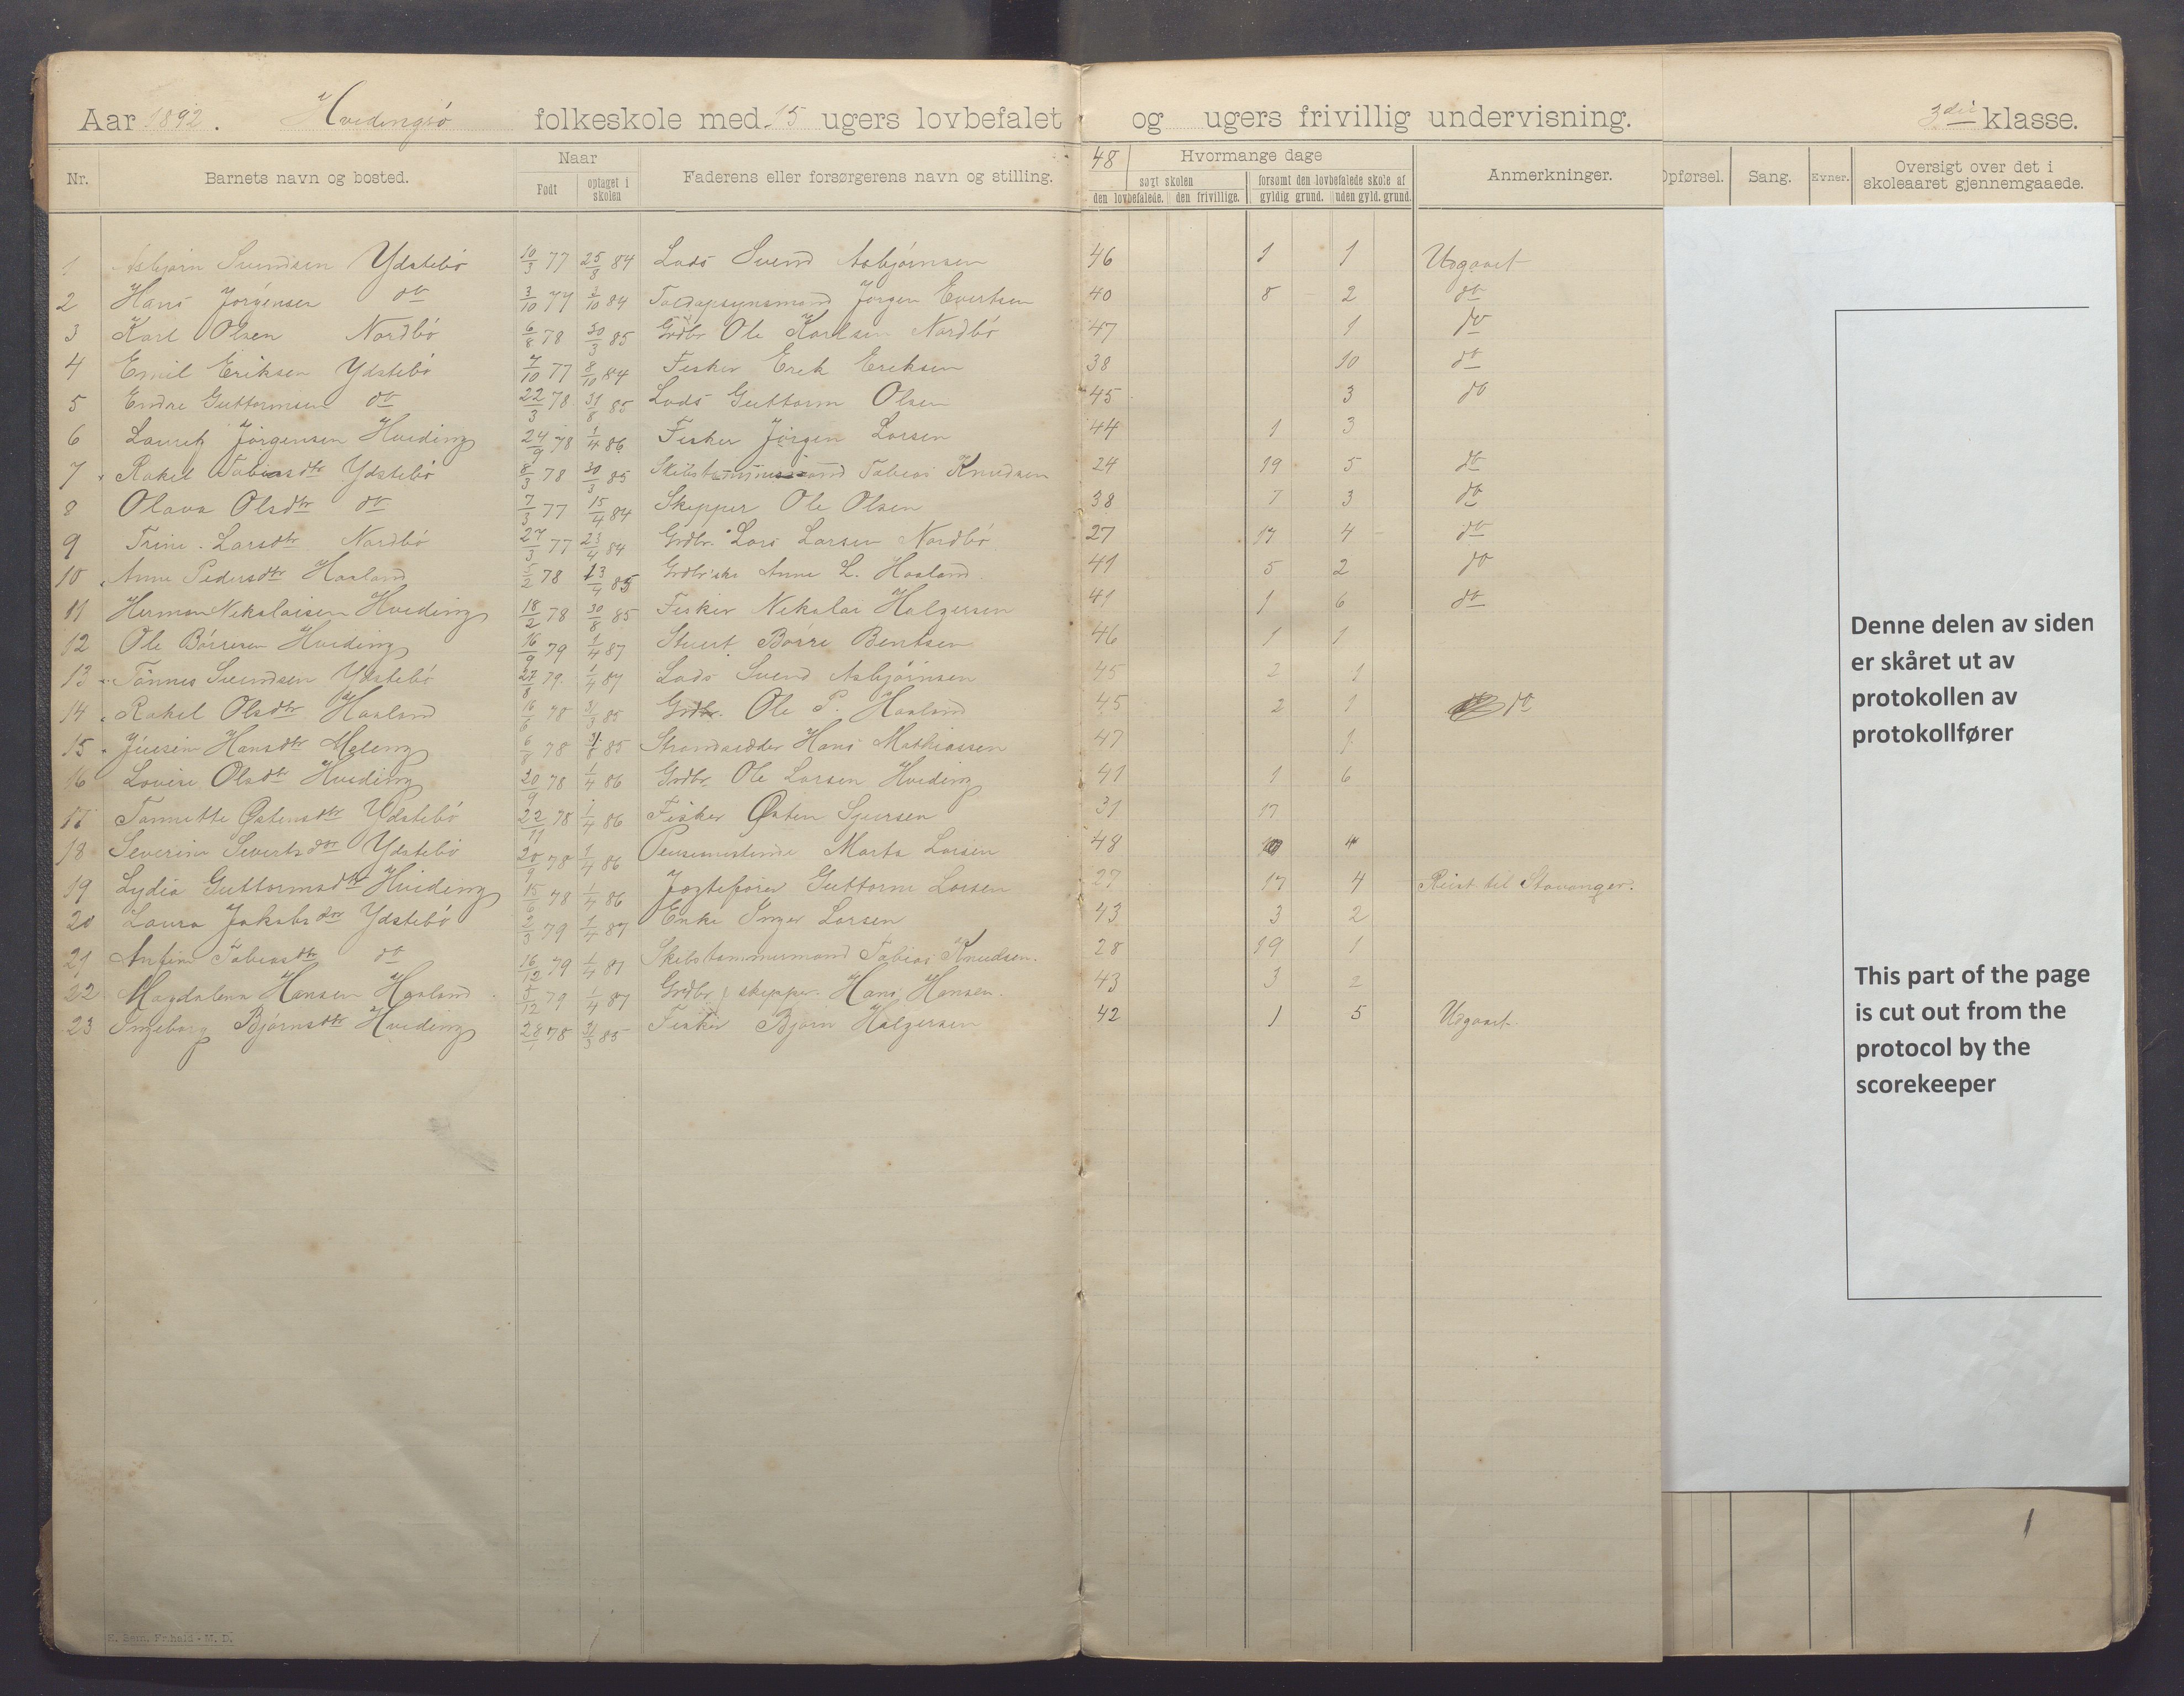 Aar 1892. Hvedingsö folkeskole med 15 ugers lovbefalet og ugers frivillig undervisning. 3die klasse.
Nr. Barnets navn og bosted. Naar Født optaget i skolen Faderens eller forsørgerens navn og stilling. 48 Hvormange dage søgt skolen den lovbefalede. den frivillige. forsømt den lovbefalede skole af gyldig grund. uden gyld. grund. Anmerkninger. Opførsel. Sang. Evner. Oversigt over det i skoleaaret gjennemgaaede.
1 Asbjørn Svendsen Ydstebö 10/3 77 25/8 84 Lods Svend Asbjörnsen 46 1 1 Udgaaet
2 Hans Jörgensen do 3/10 77 3/10 84 Toldopsynsmand Jörgen Evertsen 40 8 2 do
3 Karl Olsen Nordbö 6/8 78 30/3 85 Grdbr Ole Karlsen Nordbö 47 1 do
4 Emil Eriksen Ydstebö 7/10 77 8/10 84 Fisker Erek Ereksen 38 10 do
5 Endre Guttormsen do 22/3 78 31/8 85 Lods Guttorm Olsen 45 3 do
6 Lauritz Jörgensen Hveding 24/9 78 1/4 86 Fisker Jörgen Larsen 44 1 3
7 Rakel Tobiasdtr Ydstebö 8/3 78 30/3 85 Skibstømmermand Tobias Knudsen 24 19 5 do
8 Olava Olsdtr do 7/3 77 15/4 84 Skipper Ole Olsen 38 7 3 do
9 Trine Larsdtr Nordbö 27/3 77 23/4 84 Grdbr. Lars Larsen Nordbö 27 17 4 do
10 Anne Pedersdtr Haaland 5/2 78 13/4 85 Grdbr'ske Anne L. Haaland 41 5 2 do
11 Herman Nekolaisen Hveding 18/2 78 30/8 85 Fisker Nekolai Holgersen 41 1 6 do
12 Ole Börresen Hveding 16/9 79 1/4 87 Stuert Börre Bentsen 46 1 1
13 Tönnes Svendsen Ydstebö 27/8 79 1/4 87 Lods Svend Asbjörnsen 45 2 1
14 Rakel Olsdtr Haaland 16/6 78 31/3 85 Grdbr. Ole P. Haaland 45 2 1 do
15 Hansdtr Meling 6/8 78 31/8 85 Strandsidder Hans Mathiassen 47 1
16 Lovise Olsdtr Hveding 20/9 78 1/4 86 Grdbr. Ole Larsen Hveding 41 1 6
17 Tannette Østensdtr Ydstebö 22/11 78 1/4 86 Fisker Østen Sjursen 31 17
18 Severine Sivertsdtr Ydstebö 20/9 78 1/4 86 Marta Larsen 48
19 Lydia Guttormsdtr Hveding 15/6 78 1/4 86 Jagtefører Guttorm Larsen 27 17 4 Reist til Stavanger.
20 Laura Jakobsdtr Ydstebö 2/3 79 1/4 87 Enke Inger Larsen 43 3 2
21 Tobiasdtr do 16/12 79 1/4 87 Skibstømmermand Tobias Knudsen. 28 19 1
22 Magdalena Hansen Haaland 5/12 79 1/4 87 Grdbr / skipper. Hans Hansen. 43 3 2
23 Ingeborg Bjørnsdtr Hveding 28/1 78 31/3 85 Fisker Bjørn Holgersen 42 1 5 Udgaaet
Denne delen av siden
er skåret ut av
protokollen av
protokollfører
This part of the page
is cut out from the
protocol by the
scorekeeper
1